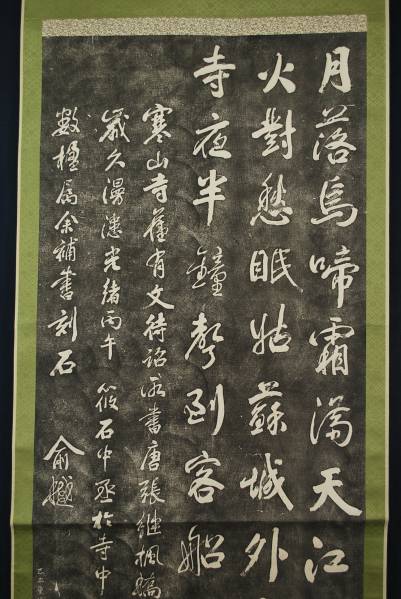 月落烏啼霜滿天江
火對愁眠姑蘇城外
寺夜半鐘聲到客船
寒山寺舊有文待詔所書唐張繼楓橋
歲久漫漶光緒丙午 筱石中丞於寺中
數楹屬余補書刻石
俞樾